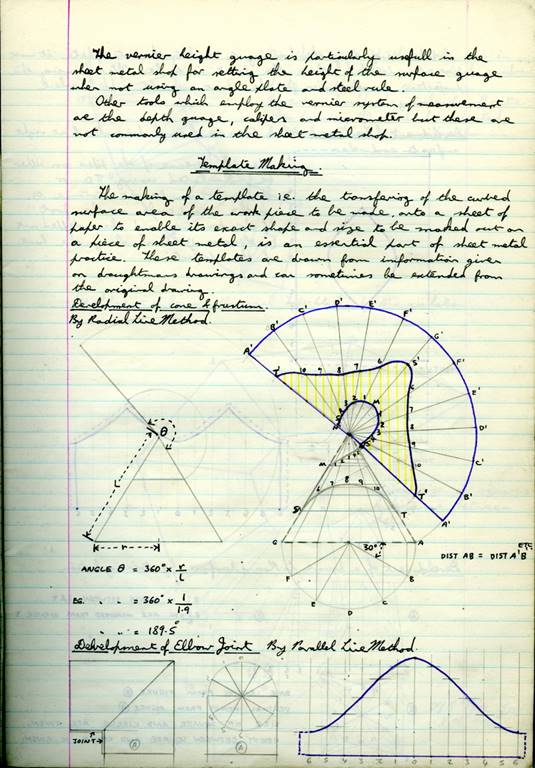 The vernier height guage is particularly usefull in the
sheet metal shop for setting the height of the surface guage
when not using an angle plate and steel rule.
Other tools which employ the vernier system of measurement
are the depth guage, calipers and micrometer but these are
not commonly used in the sheet metal shop.
Template Making.
The making of a template i.e. the transfering of the curved
surface area of the work piece to be made, onto a sheet of
paper to enable its exact shape and size to be marked out on
a piece of sheet metal, is an essential part of sheet metal
practice. These templates are drawn from information given
on draughtmans drawings and can sometimes be extended from
the original drawing.
Development of cone & frustum.
By Radial Line Method.
A' B' C' D' E' F' G' F' E' D' C' B' A'
T' 10 9 8 7 6 S' 6 7 8 9 10 T'
θ
L
r
M
6 7 8 9 10
S T
G 30° A
F B
E C
D
DIST AB = DIST A'B' ETC
ANGLE θ = 360° × r/L
EG. " " = 360° × 1/1.9
" " = 189.5°
Development of Elbow Joint By Parallel Line Method.
JOINT
A
A
6 5 4 3 2 1 0 1 2 3 4 5 6